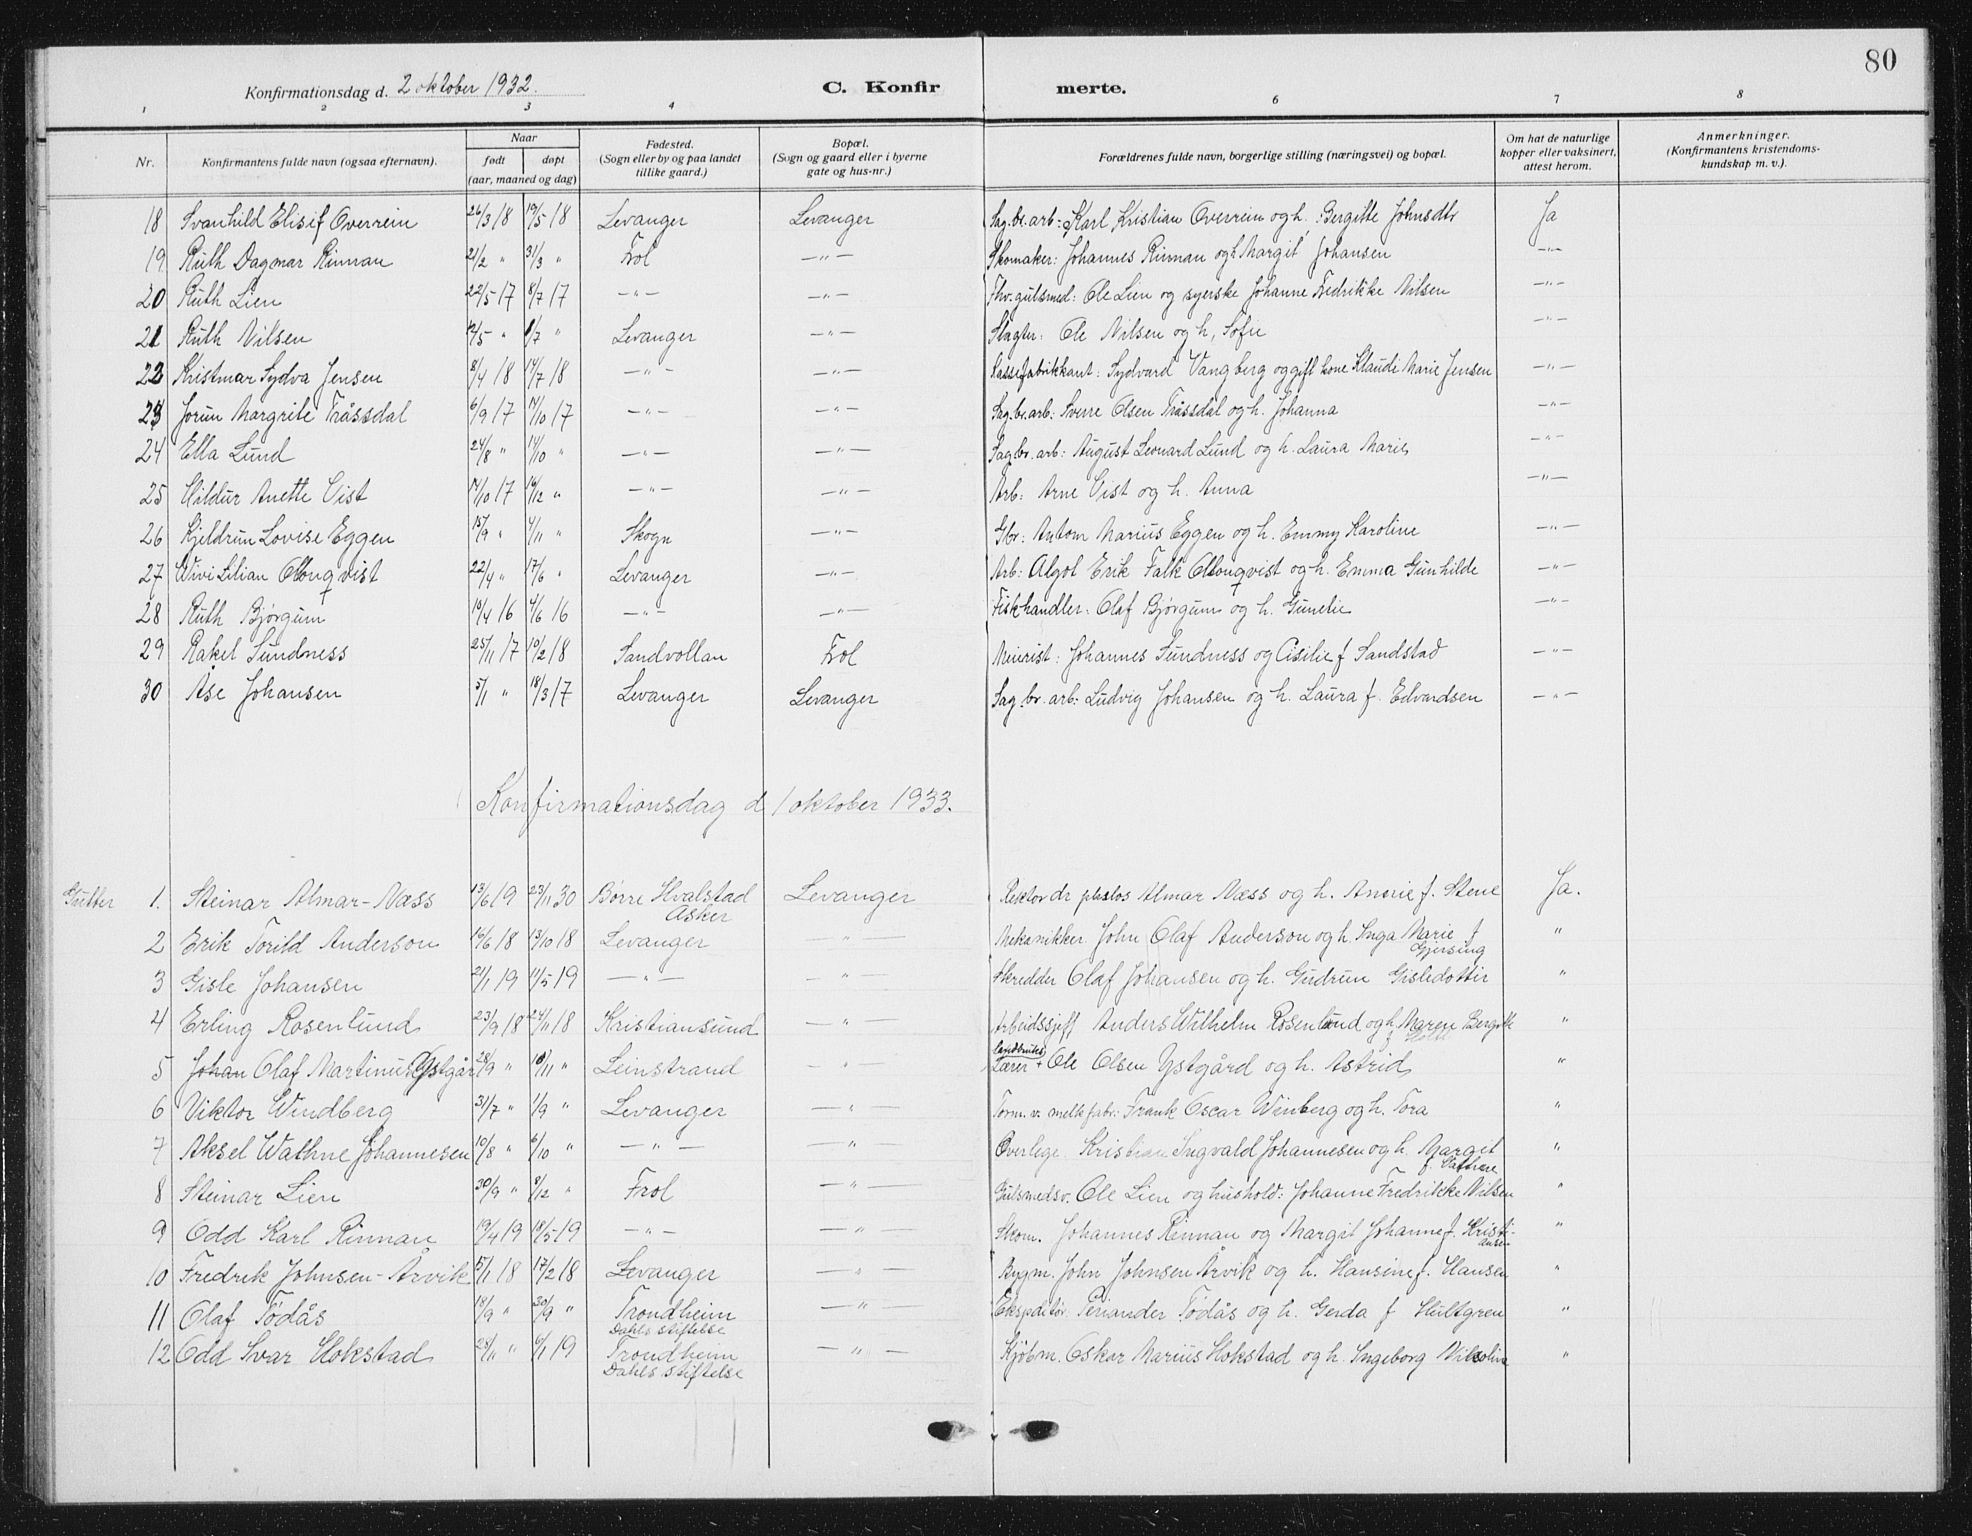 80
Konfirmationsdag d. 2 oktober 1932.
C. Konfirmerte.
1 2 3 4 6 7 8
Nr. Konfirmantens fulde navn (ogsaa efternavn). Naar født døpt (aar, maaned og dag) Fødested. (Sogn eller by og paa landet tillike gaard.) Bopæl. (Sogn og gaard eller i byerne gate og hus-nr.) Forældrenes fulde navn, borgerlige stilling (næringsvei) og bopæl. Om hat de naturlige kopper eller vaksinert, attest herom. Anmerkninger. (Konfirmantens kristendoms-kundskap m. v.).
18 Svanhild Elisif Overrein 26/3 18 19/5 18 Levanger Levanger Sag.br.arb.: Karl Kristian Overrein og h. Bergitte Johnsdtr Ja
19 Ruth Dagmar Rinnan 21/2 " 31/3 " Frol —"— Skomaker: Johannes Rinnan og h Margit Johansen —"—
20 Ruth Lien 22/5 17 8/7 17 —"— —"— Fhv. gulsmed: Ole Lien og syerske Johanne Fredrikke Nilsen —"—
21 Ruth Nilsen 12/5 " 1/7 " Levanger —"— Slagter: Ole Nilsen og h, Sofie —"—
22 Kristmar Sydva Jensen 8/4 18 14/7 18 —"— —"— Kassefabrikkant: Sydvard Vangberg og gift kone Klaudi Marie Jensen —"—
23 Jorun Margrete Tråssdal 6/9 17 14/10 17 —"— —"— Sag.br.arb: Sverre Olsen Tråssdal og h. Johanna —"—
24 Ella Lund 24/8 " 14/10 " —"— —"— Sag.br.arb: August Leonard Lund og h. Laura Marie —"—
25 Hildur Anette Vist 14/10 17 16/12 " —"— —"— Arb: Arne Vist og h. Anna —"—
26 Kjeldrun Lovise Eggen 15/9 " 4/11 " Skogn —"— Gbr: Antom Marius Eggen og h. Emmy Karoline —"—
27 Wivi Lilian Ollonqvist 22/4 " 17/6 " Levanger —"— Arb: Algot Erik Falk Ollonqvist og h. Emma Gunhilde —"—
28 Ruth Bjørgum 10/4 16 4/6 16 —"— —"— Fiskhandler: Olaf Bjørgum og h. Gunelie —"—
29 Rakel Sundness 25/11 17 10/2 18 Sandvollan Frol Meierist: Johannes Sundness og Cisilie f Sandstad —"—
30 Åse Johansen 5/1 " 18/3 17 Levanger Levanger Sag.br.arb: Ludvig Johansen og h. Laura f. Edvardsen —"—
Konfirmationsdag d 1 oktober 1933.
Gutter 1. Steinar Almar-Næss 13/6 19 23/11 30 Børre Hvalstad Asker Levanger Rektor dr philos Almar Næss og h. f. Stene Ja.
2 Erik Torild Anderson 16/6 18 13/10 18 Levanger —"— Mekanikker John Olaf Anderson og h. Inga Marie f Gjersing "
3 Gisle Johansen 21/1 19 11/5 19 —"— —"— Skredder Olaf Johansen og h. Gudrun Gisledottir "
4 Erling Rosenlund 23/9 18 24/11 18 Kristiansund —"— Arbeidssjeff Anders Wilhelm Rosenlund og h. Maren Bergith f Holt "
5 Johan Olaf Martinus Ystgår 28/9 " 10/11 " Leinstrand —"— landbruks Lærer + Ole Olsen Ystgård og h. Astrid "
6 Viktor Windberg 31/7 " 1/9 " Levanger —"— Form. v. melkfabr: Frank Oscar Winberg og h. Tora "
7 Aksel Wathne Johannesen 10/8 " 6/10 " —"— —"— Overlege Kristian Ingvald Johannesen og h. Margit f. Vathne "
8 Steinar Lien 30/9 " 8/12 " Frol —"— Gulsmedsv. Ole Lien og hushold: Johanne Fredrikke Nilsen "
9 Odd Karl Rinnan 19/4 19 18/5 19 —"— —"— Skom. Johannes Rinnan og Margit Johanne f. Kristiansen "
10 Fredrik Johnsen-Årvik 5/1 18 17/2 18 Levanger —"— Bygm. John Johnsen Årvik og h. Hansine f. Hansen "
11 Olaf Tødås 18/9 " 30/9 " Trondheim Dahls stiftelse —"— Ekspeditør Periander Tødås og h. Gerda f Hultgren "
12 Odd Ivar Hokstad 28/11 " 6/1 19 Trondheim Dahls stiftelse —"— Kjøbm. Oskar Marius Hokstad og h. Ingeborg Nikoline "